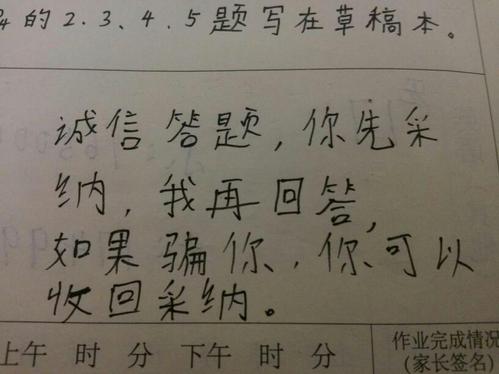 的2.3.4.5题写在草稿本。
诚信答题,你先采
纳,我再回答,
如果骗你,你可以
收回采纳。
上午 时 分 下午 时 分
作业完成情况
(家长签名)